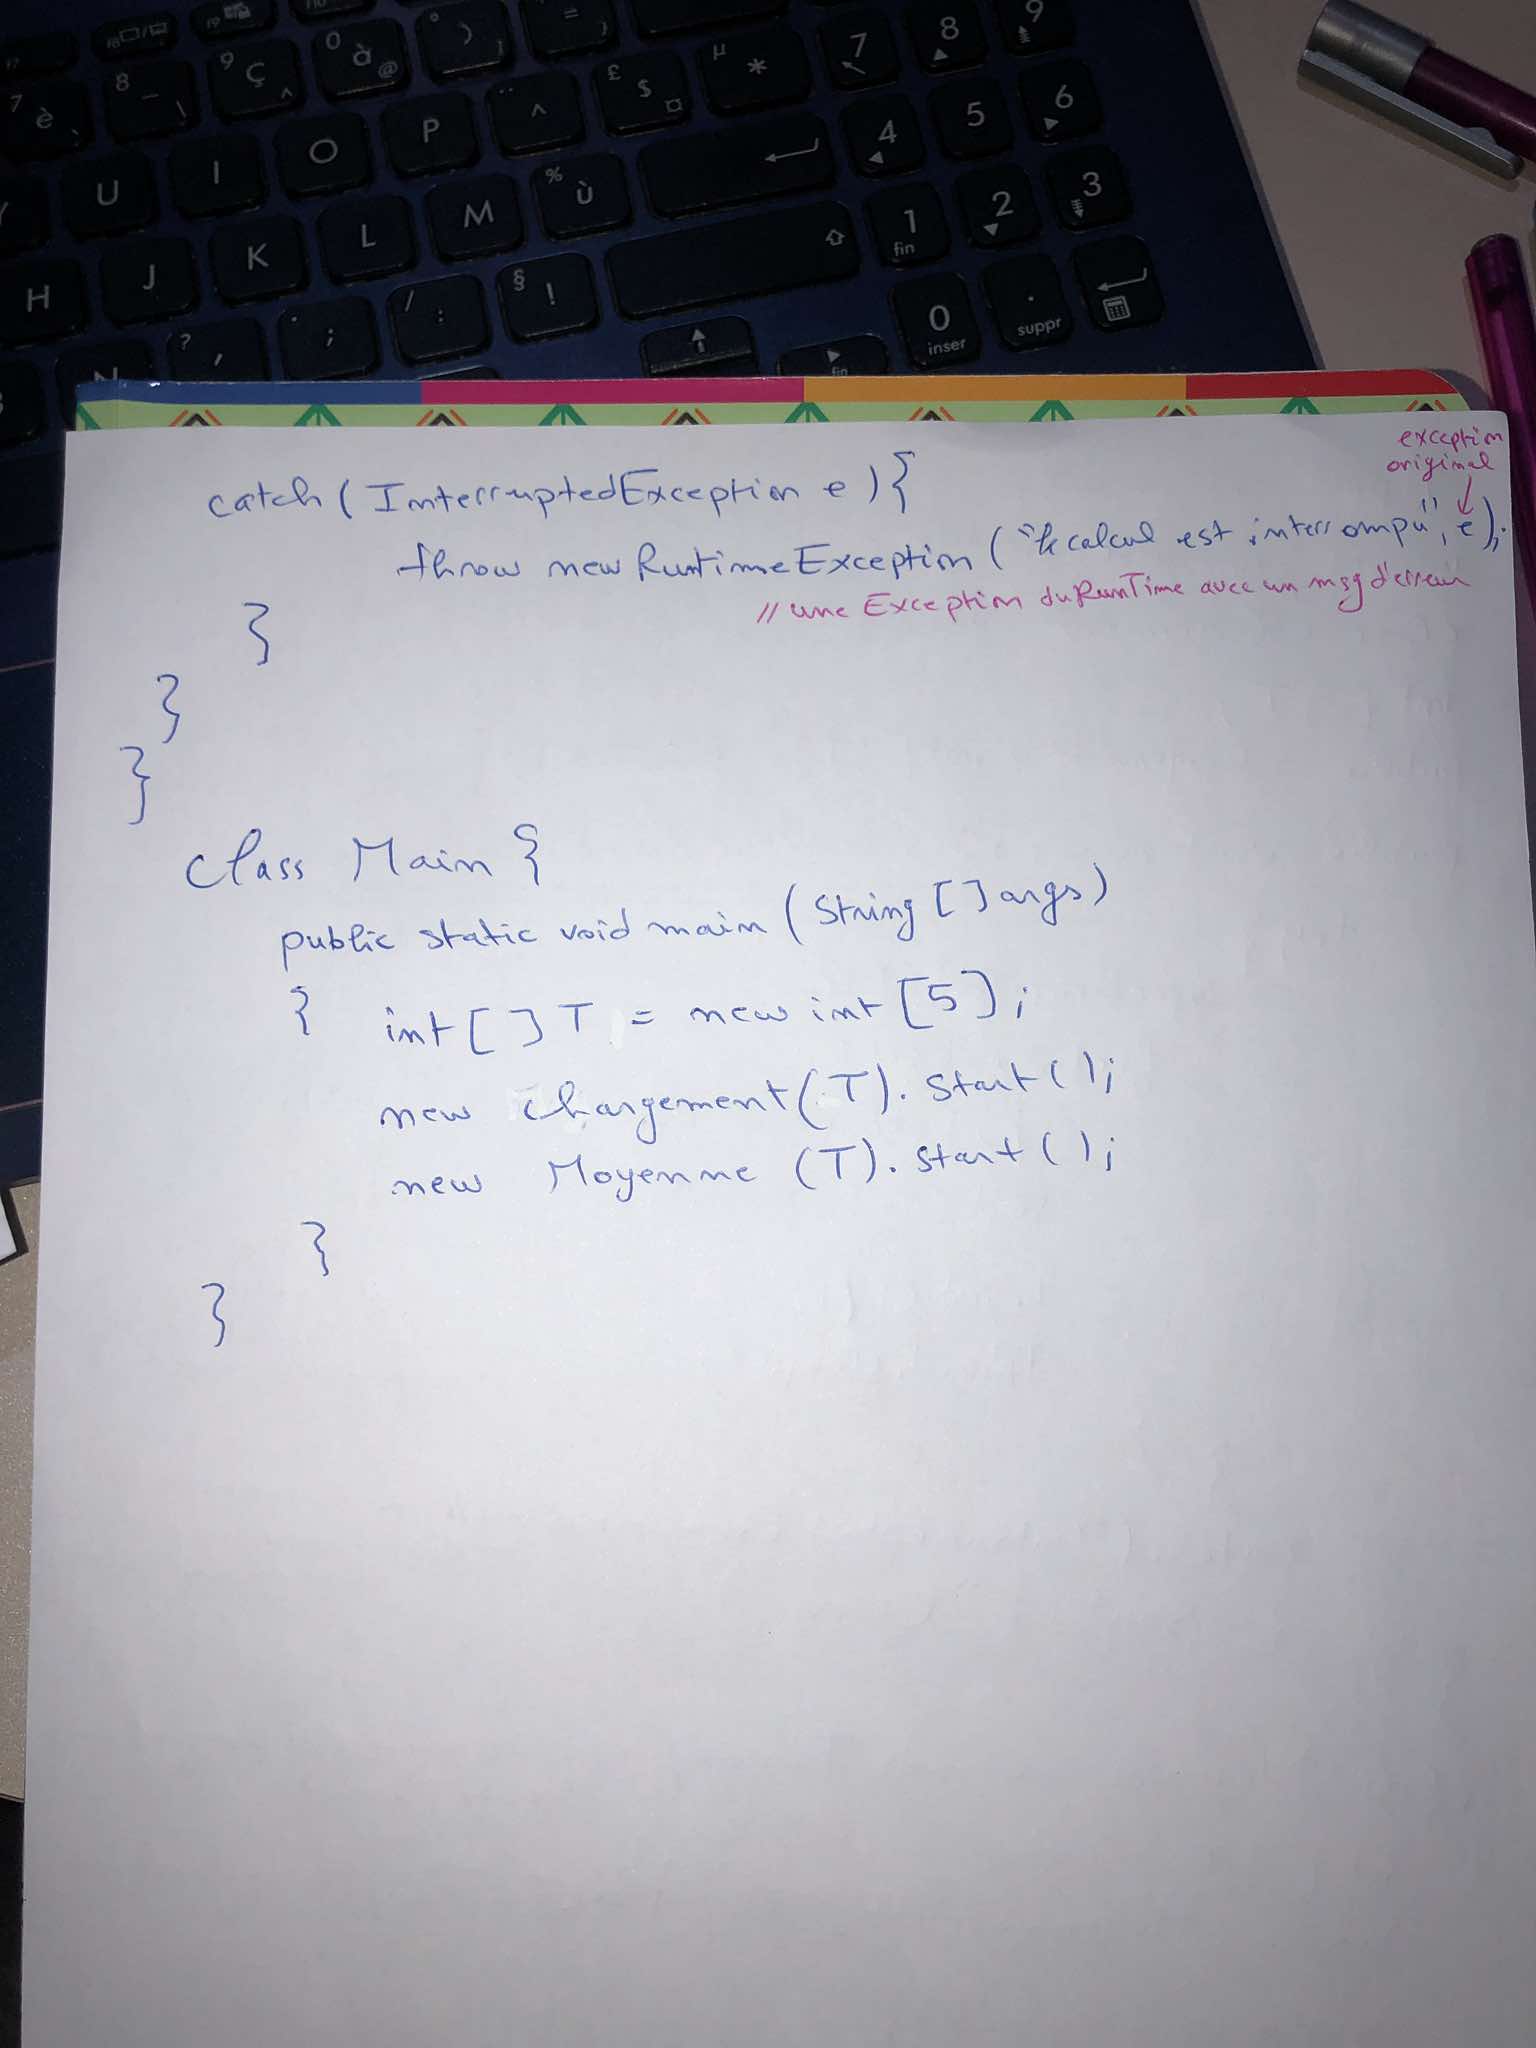 7 è `
8 _ \
9 ç ^
0 à @
° ) ]
= }
£ $ ¤
µ *
7
8
9
U I O P ¨ ^
4 5 6
H J K L M % ù
1 fin
2
3
N ? , . ; / : § !
0 inser
. suppr
fin
exception
original
catch (InterruptedException e) {
throw new RuntimeException ("le calcul est interrompu", e);
// une Exception du RunTime avec un msg d'erreur
}
}
}
class Main {
public static void main (String [] args)
{ int [] T = new int [5];
new chargement (T). start ();
new Moyenne (T). start ();
}
}